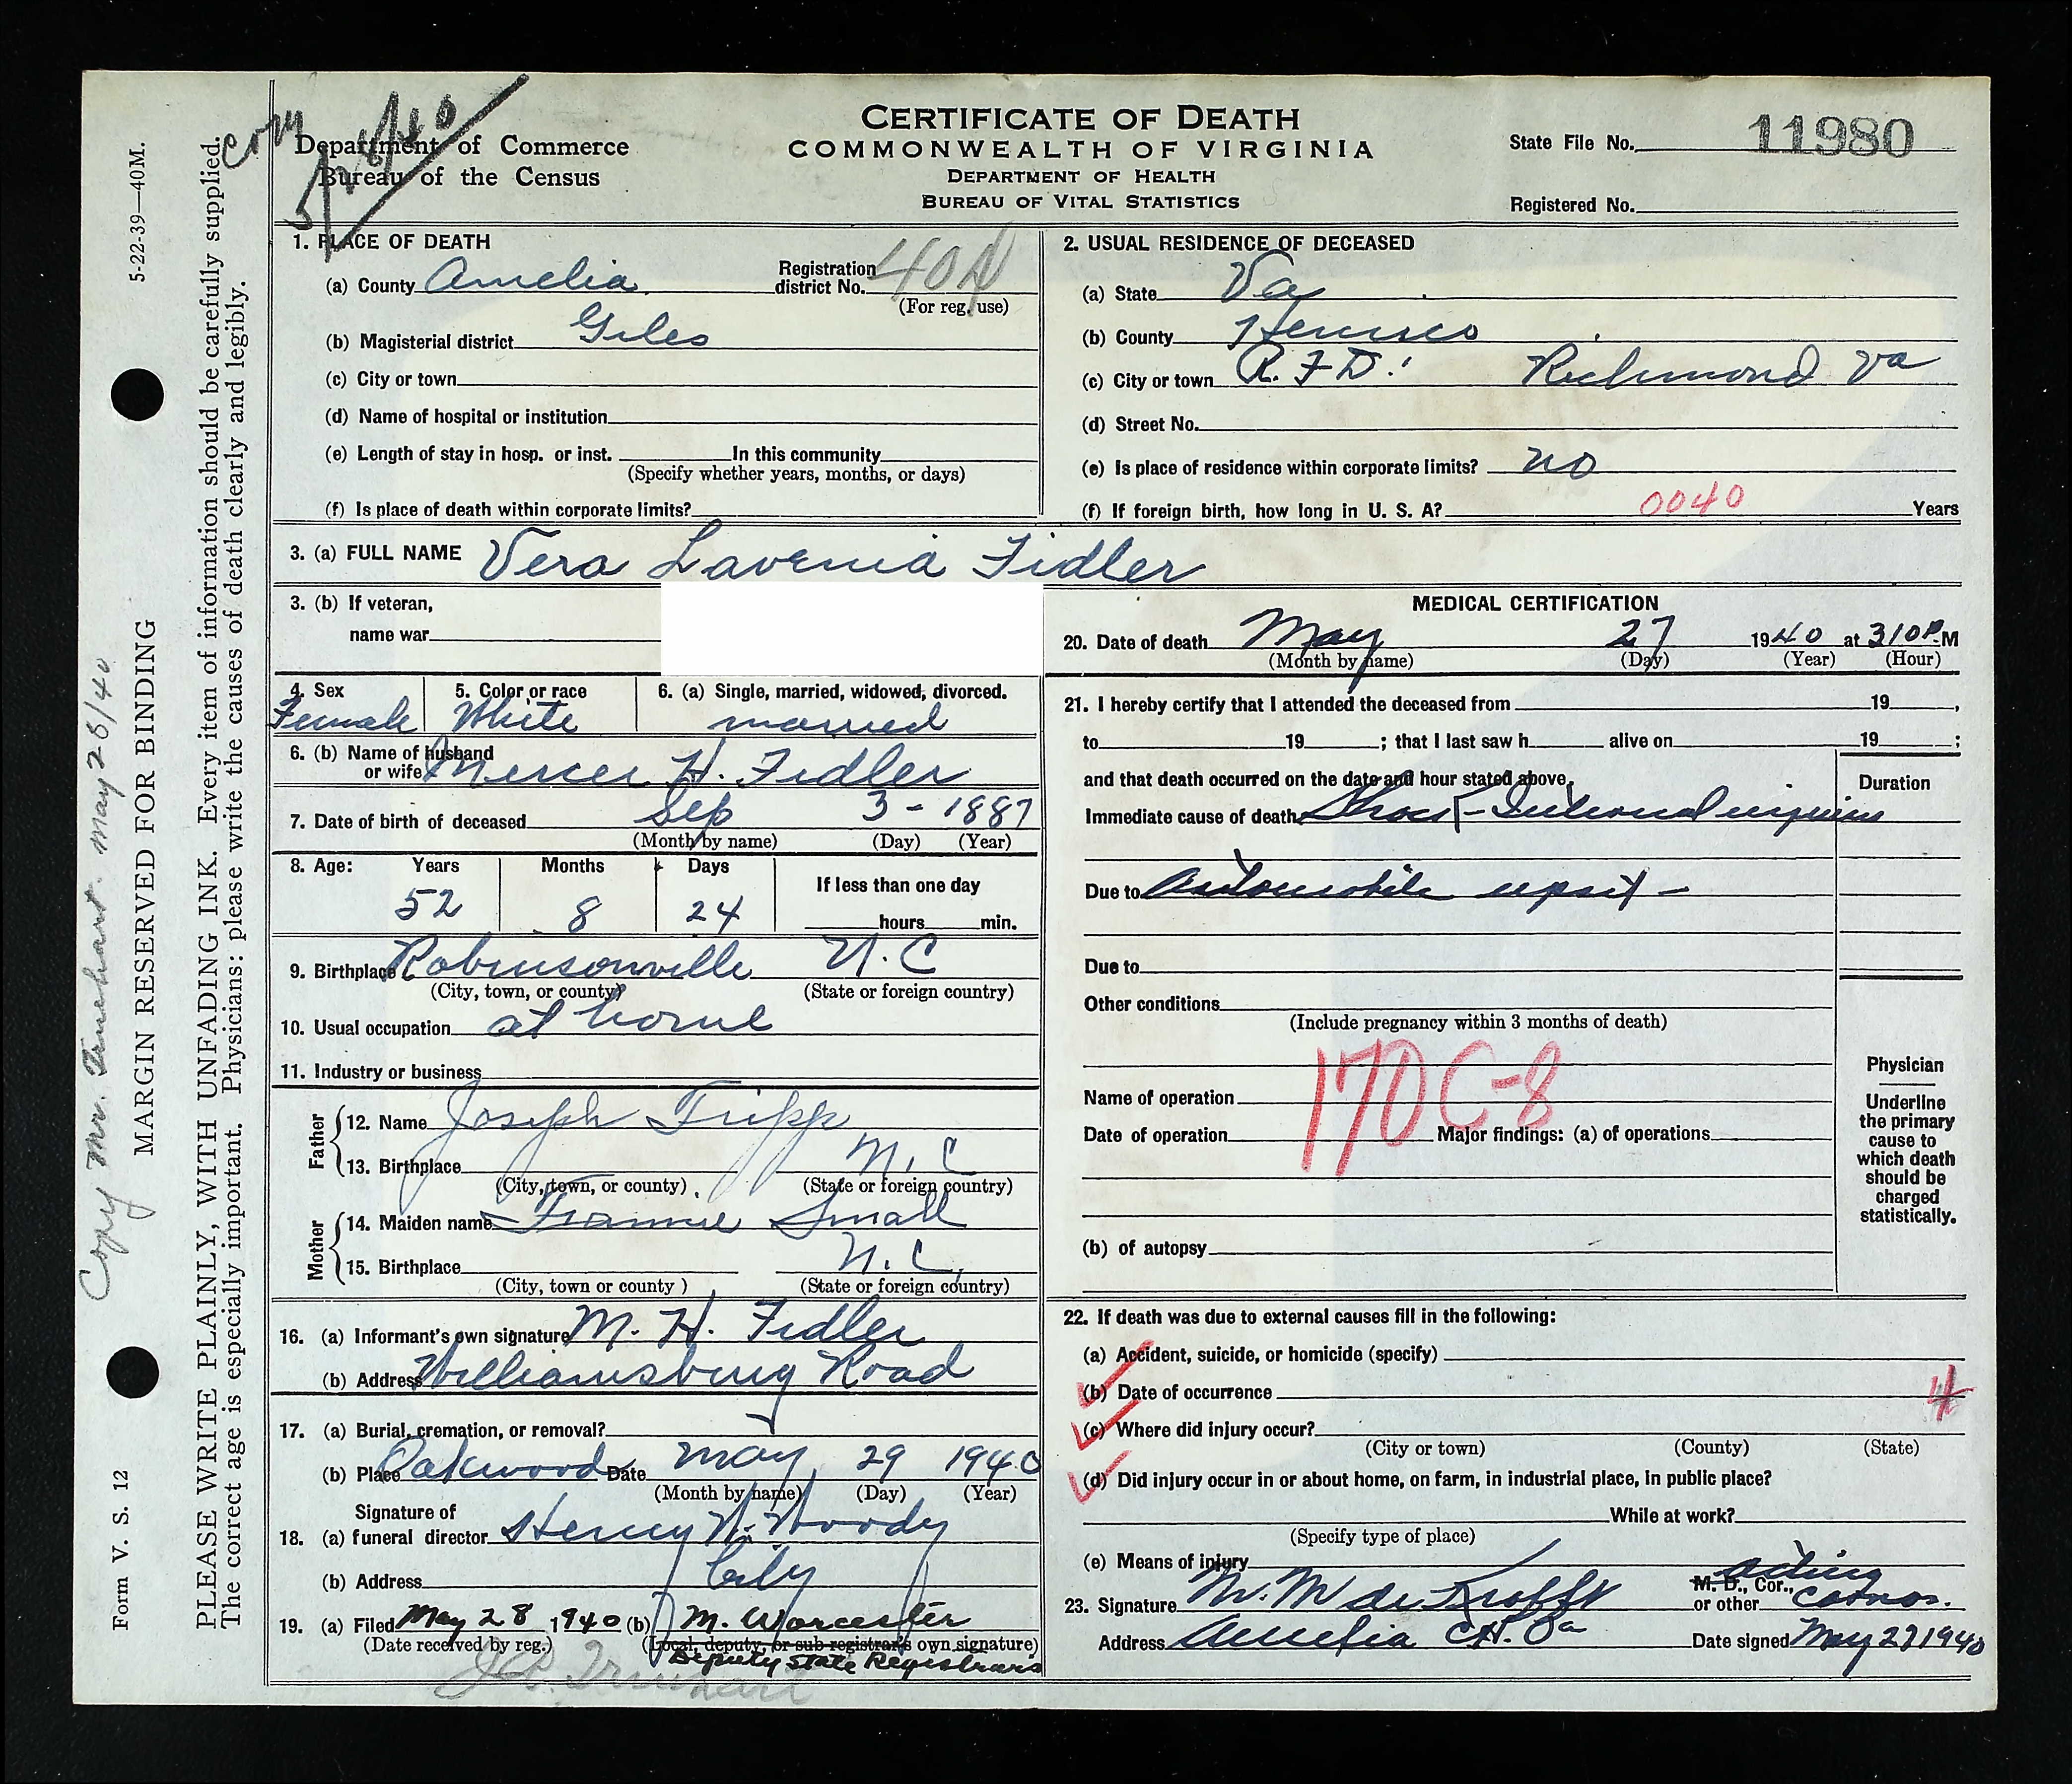 Copy
5/28/40
Department of Commerce
Bureau of the Census
CERTIFICATE OF DEATH
COMMONWEALTH OF VIRGINIA
DEPARTMENT OF HEALTH
BUREAU OF VITAL STATISTICS
State File No. 11980
Registered No.
1. PLACE OF DEATH
(a) County Amelia Registration district No. 40A
(For reg. use)
(b) Magisterial district Giles
(c) City or town
(d) Name of hospital or institution
(e) Length of stay in hosp. or inst. In this community
(Specify whether years, months, or days)
(f) Is place of death within corporate limits?
2. USUAL RESIDENCE OF DECEASED
(a) State Va
(b) County Henrico
(c) City or town R. F. D. Richmond Va
(d) Street No.
(e) Is place of residence within corporate limits? no
(f) If foreign birth, how long in U. S. A? 0040 Years
3. (a) FULL NAME Vera Lavenia Fidler
3. (b) If veteran,
name war
4. Sex 5. Color or race 6. (a) Single, married, widowed, divorced.
Female White married
6. (b) Name of husband
or wife Mercer H. Fidler
7. Date of birth of deceased Sep 3 - 1887
(Month by name) (Day) (Year)
8. Age: Years Months Days If less than one day
52 8 24 hours min.
9. Birthplace Robinsonville N. C
(City, town, or county) (State or foreign country)
10. Usual occupation at home
11. Industry or business
Father
12. Name Joseph Tripp
13. Birthplace N. C
(City, town, or county) (State or foreign country)
Mother
14. Maiden name Fannie Small
15. Birthplace N. C.
(City, town or county ) (State or foreign country)
16. (a) Informant's own signature M. H. Fidler
(b) Address Williamsburg Road
17. (a) Burial, cremation, or removal?
(b) Place Oakwood Date May 29 1940
(Month by name) (Day) (Year)
Signature of
18. (a) funeral director Henry W. Woody
(b) Address City
19. (a) Filed May 28 1940 (b) M. Worcester
(Date received by reg.) (Local, deputy, or sub-registrar's own signature)
Deputy State Registrars
MEDICAL CERTIFICATION
20. Date of death May 27 1940 at 310 P. M
(Month by name) (Day) (Year) (Hour)
21. I hereby certify that I attended the deceased from 19 ,
to 19 ; that I last saw h alive on 19 ;
and that death occurred on the date and hour stated above.
Duration
Immediate cause of death Shock - Internal injuries
Due to Automobile upset -
Due to
Other conditions
(Include pregnancy within 3 months of death)
170 C-8
Name of operation
Date of operation Major findings: (a) of operations
(b) of autopsy
Physician
Underline
the primary
cause to
which death
should be
charged
statistically.
22. If death was due to external causes fill in the following:
(a) Accident, suicide, or homicide (specify)
(b) Date of occurrence
(c) Where did injury occur?
(City or town) (County) (State)
(d) Did injury occur in or about home, on farm, in industrial place, in public place?
While at work?
(Specify type of place)
(e) Means of injury
23. Signature M. D., Cor., or other Acting Coronor.
Address Amelia C.H. Va Date signed May 27 1940
5-22-39—40M.
MARGIN RESERVED FOR BINDING
Form V. S. 12
PLEASE WRITE PLAINLY, WITH UNFADING INK. Every item of information should be carefully supplied.
The correct age is especially important. Physicians: please write the causes of death clearly and legibly.
Copy Mr. May 28/40